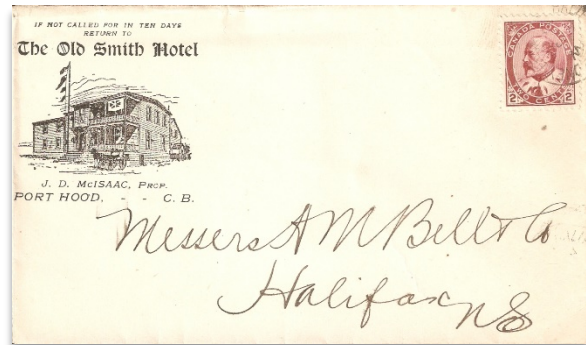 IF NOT CALLED FOR IN TEN DAYS
RETURN TO
The Old Smith Hotel
J. D. McISAAC, PROP.
PORT HOOD, - - C. B.
CANADA POSTAGE
2 TWO CENTS 2
Messers A M Bell & Co
Halifax NS